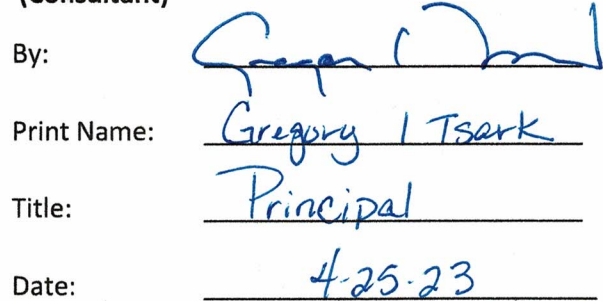 (Consultant)
By:
Print Name: Gregory I Tsark
Title: Principal
Date: 4-25-23